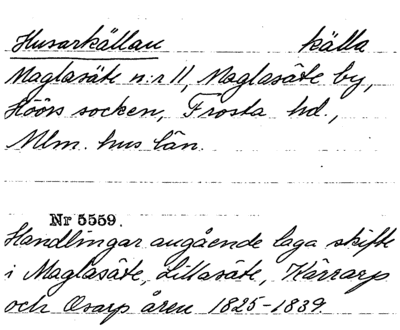 Husarkällan källa
Maglasäte n:r 11, Maglasäte by,
Höörs socken, Frosta hd.,
Mlm. hus län.
Nr 5559.
Handlingar angående laga skifte
i Maglasäte, Lillasäte, Kärrarp
och Osarp åren 1825-1839.